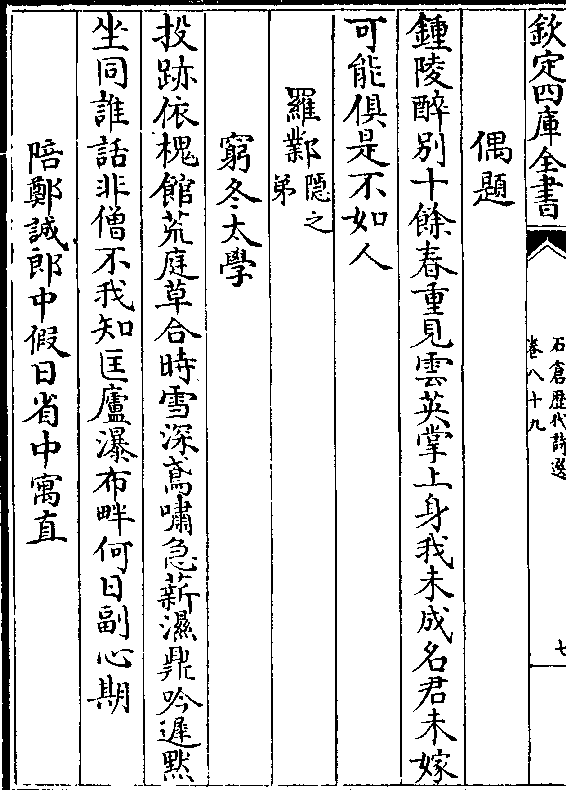 欽定四庫全書
石倉歷代詩選
卷八十九
七
偶題
鍾陵醉别十餘春重見雲英掌上身我未成名君未嫁
可能俱是不如人
羅鄴隱之
弟
窮冬太學
投跡依槐館荒庭草合時雪深鳶嘯急薪濕鼎吟遲黙
坐同誰話非僧不我知匡廬瀑布畔何日副心期
陪鄭誠郎中假日省中寓直